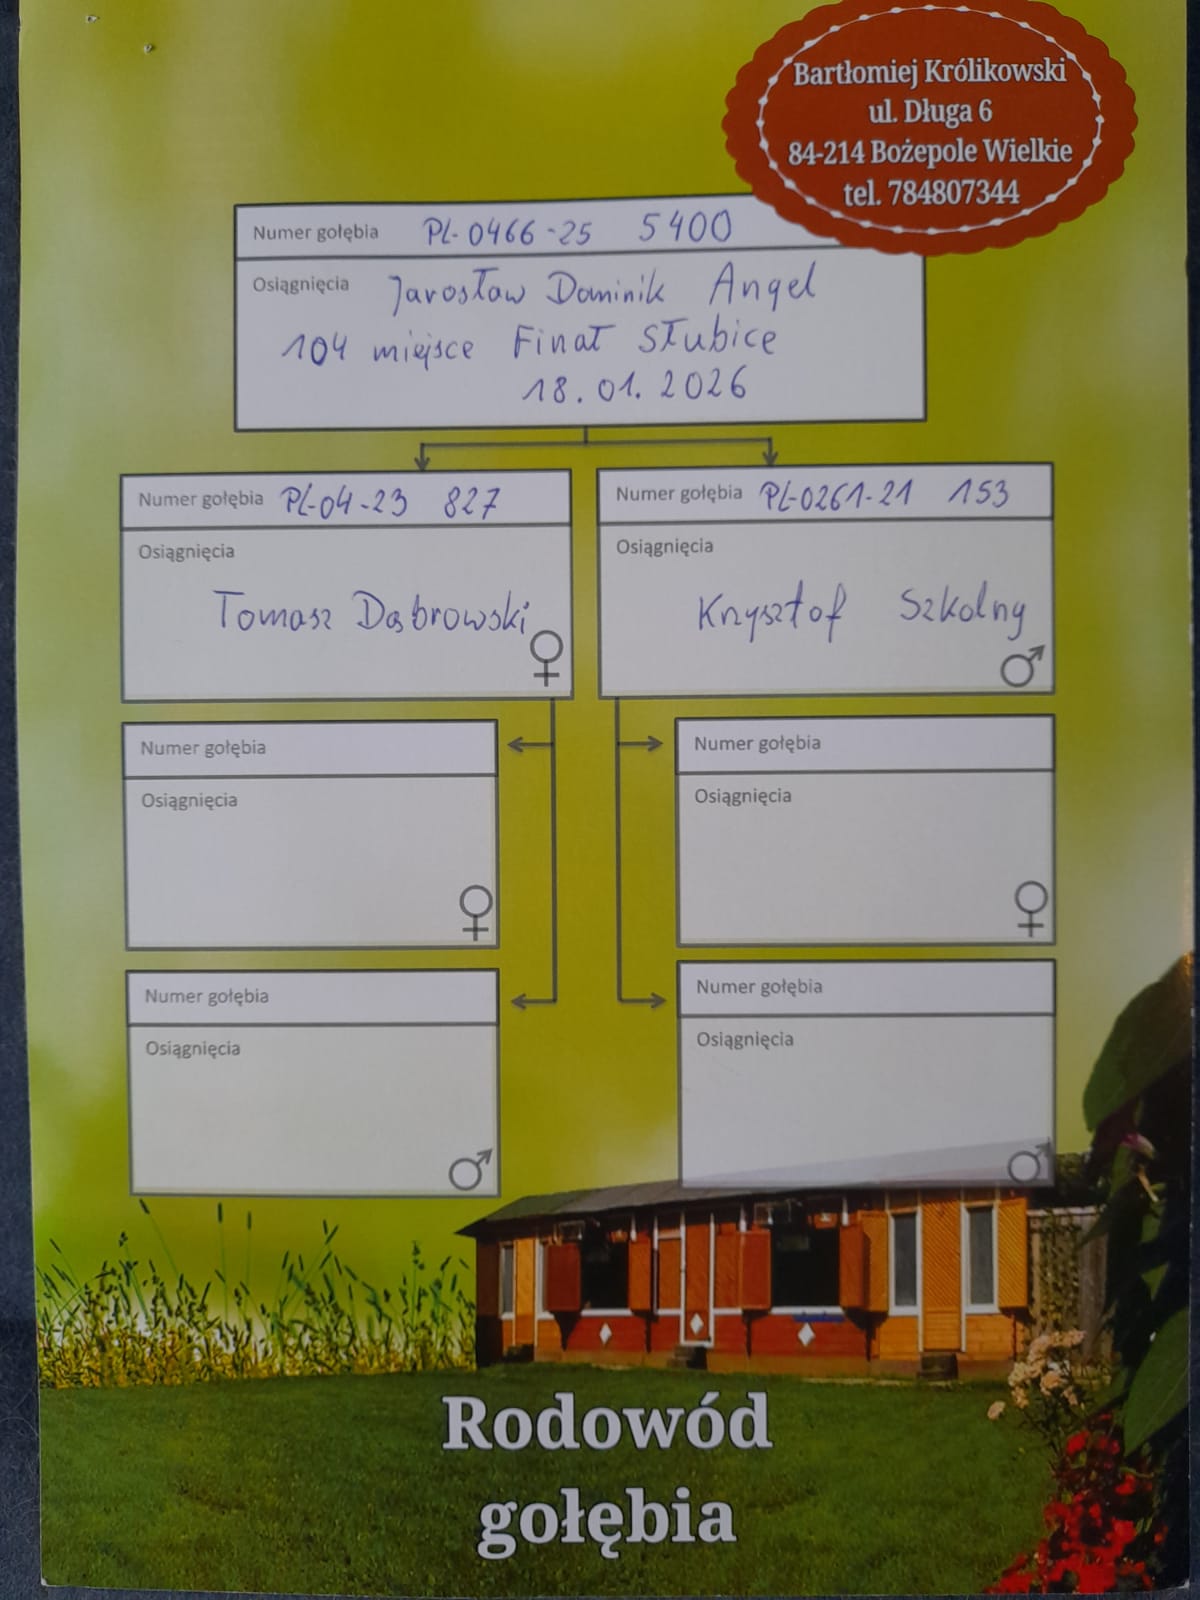 Bartłomiej Królikowski
ul. Długa 6
84-214 Bożepole Wielkie
tel. 784807344
Numer gołębia PL-0466-25 5400
Osiągnięcia Jarosław Dominik Angel
104 miejsce Finał Słubice
18.01.2026
Numer gołębia PL-04-23 827
Osiągnięcia
Tomasz Dąbrowski
Numer gołębia PL-0261-21 153
Osiągnięcia
Krzysztof Szkolny
Numer gołębia
Osiągnięcia
Numer gołębia
Osiągnięcia
Numer gołębia
Osiągnięcia
Numer gołębia
Osiągnięcia
Rodowód
gołębia